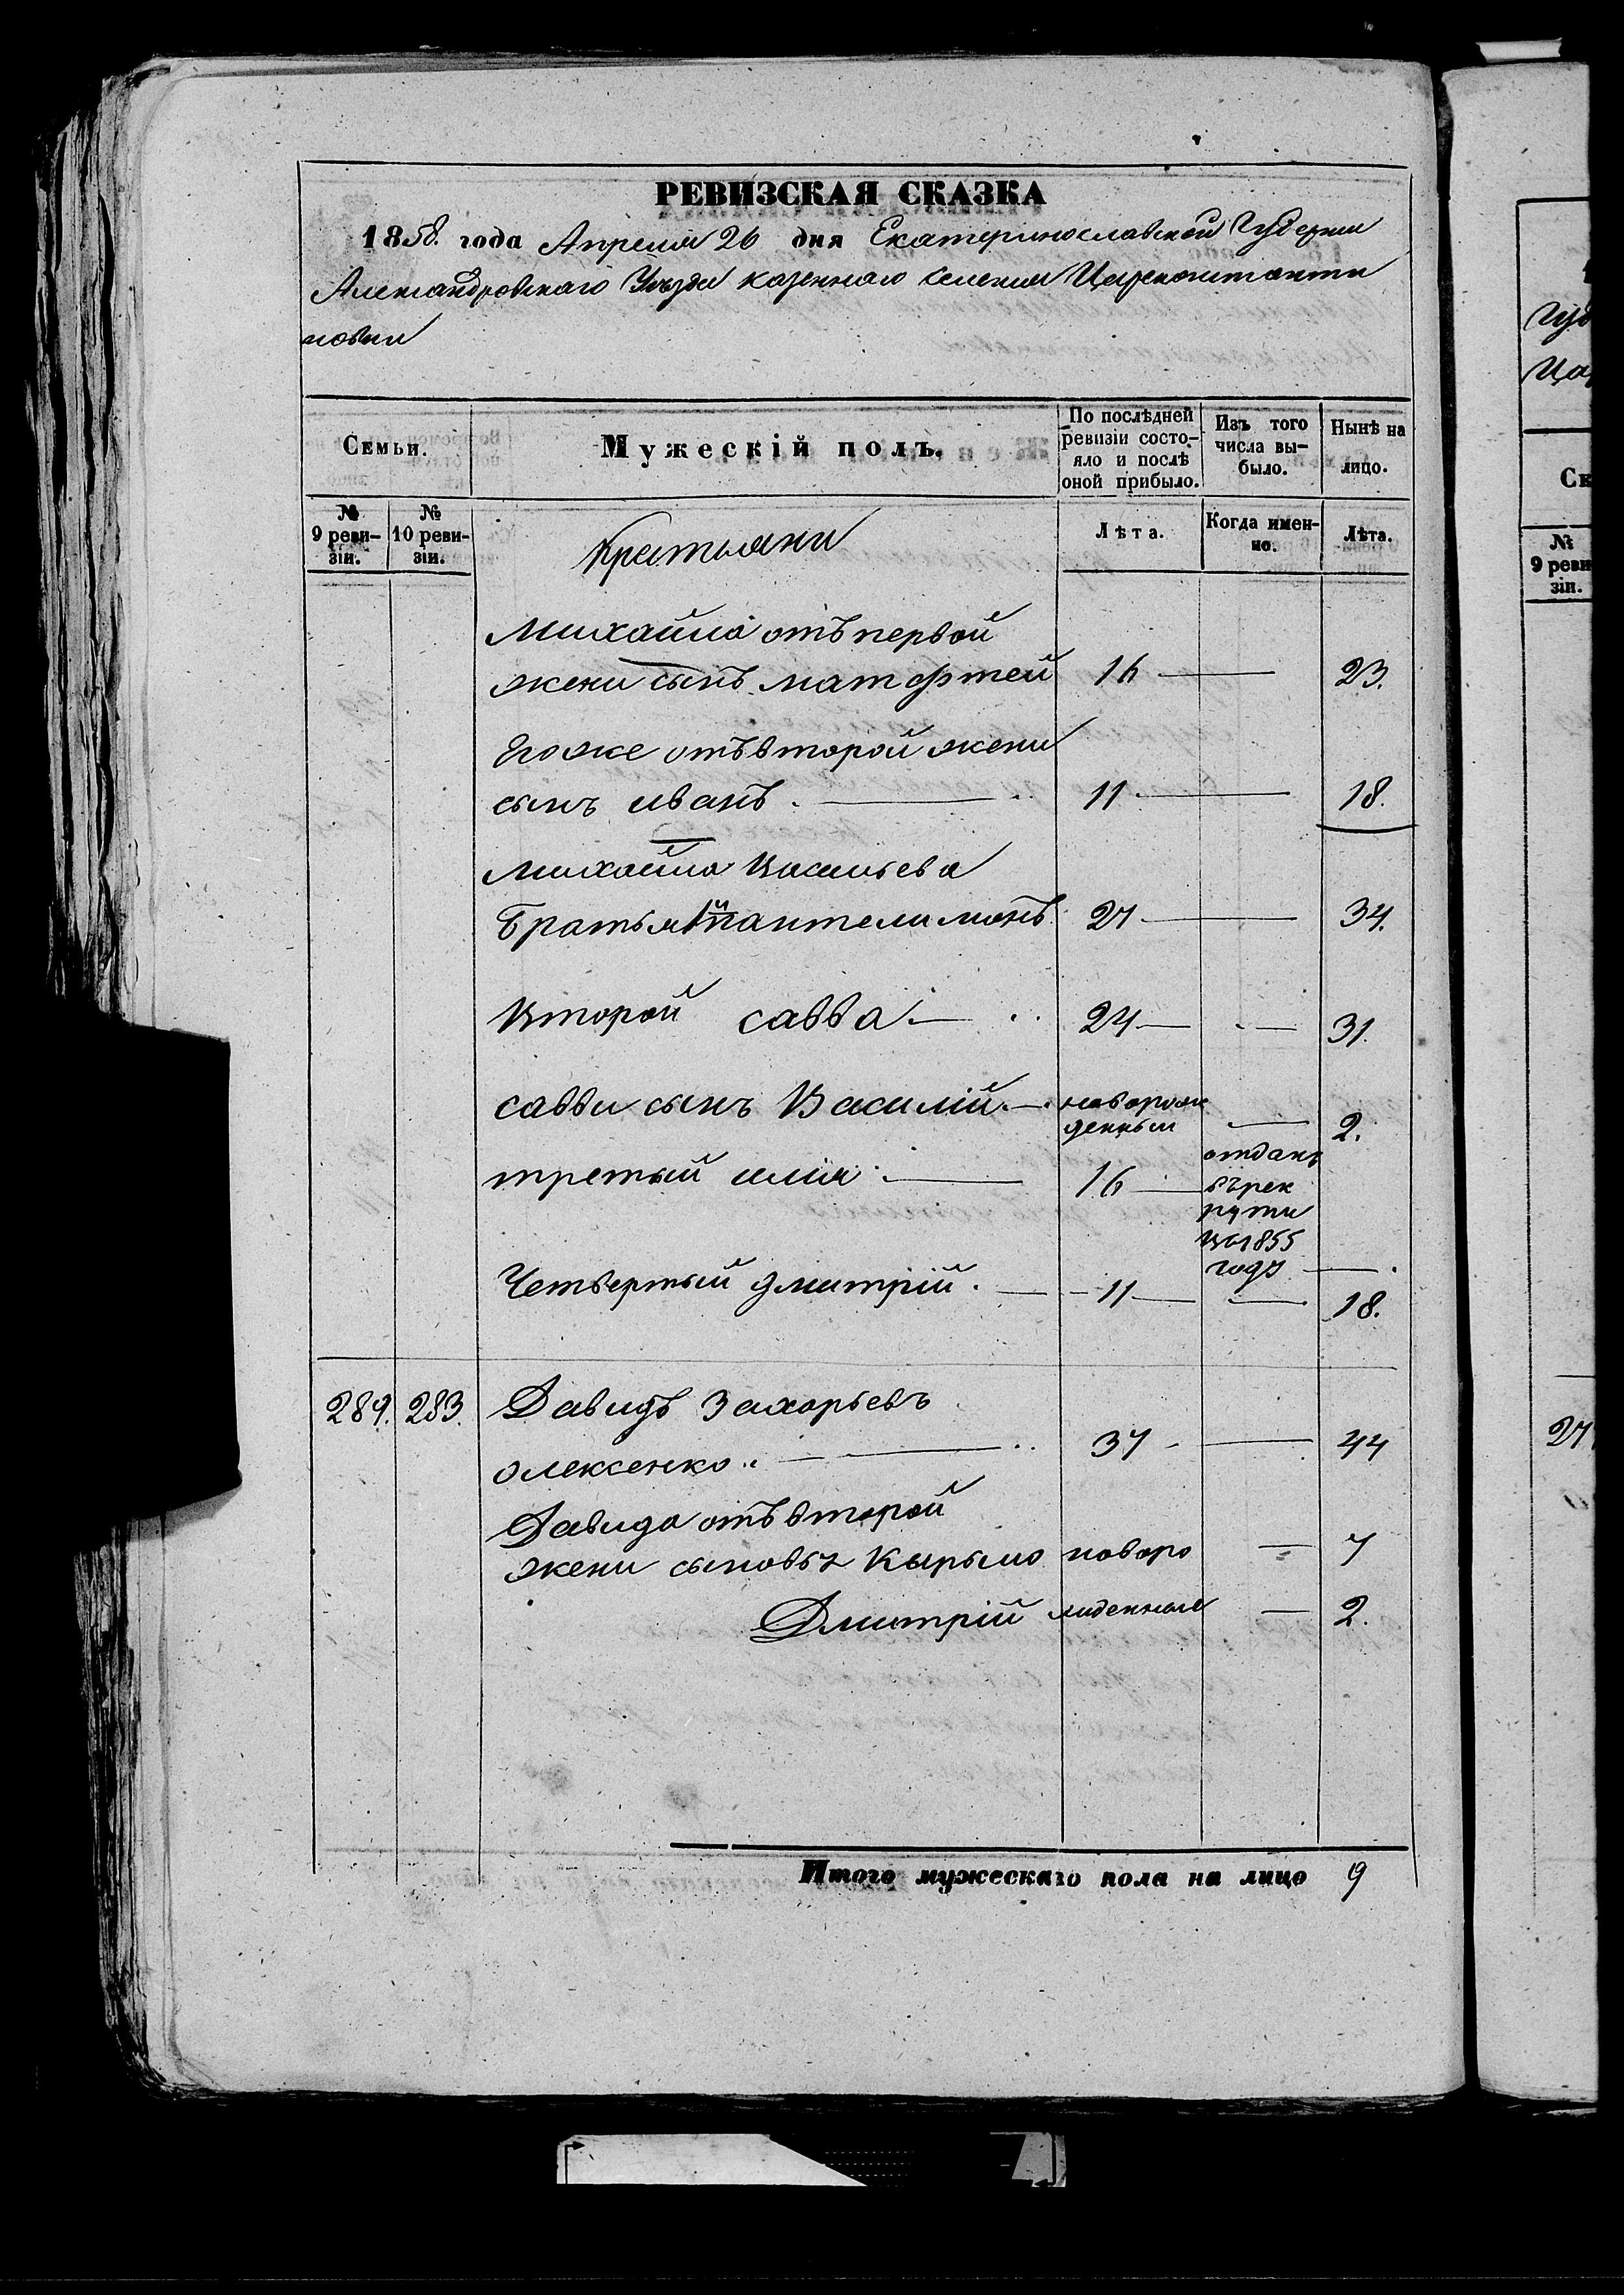 РЕВИЗСКАЯ СКАЗКА
1858. года Апреля 26 дня Екатеринославской Губернии
Александровскаго Уѣзда казеннаго селения Цареконстанти
новки
Семьи.
Мужескій полъ.
По послѣдней ревизіи состо-
яло и послѣ оной прибыло.
Изъ того числа вы-
было.
Нынѣ на лицо.
№ 9 реви-
зіи.
№ 10 реви-
зіи.
Крестьяни
Лѣта.
Когда имен-
но.
Лѣта.
Михайла отъ первой
жени сынъ матофтей 16 — 23.
Егоже отъ второй жени
сынъ иванъ. — 11 — 18.
Михайла Васильева
Братья 1й пантелимонъ. 27 — 34.
Второй савва — 24 — — 31.
савви сынъ Василій. — новорож
денный — 2.
третий илия — 16 —
отданъ
върек
рути
въ 1855
году — .
Четвертый дмитрій. — 11 — — 18.
289. 283. Давидъ Захарьевъ
олексенко.. — 37 — 44
Давида отъ второй
жени сыновья Кырыло новоро — 7
Дмитрій жденные — 2.
Итого мужескаго пола на лицо 9
Губ
Цар
Ск
№
9 реви
зіи.
27